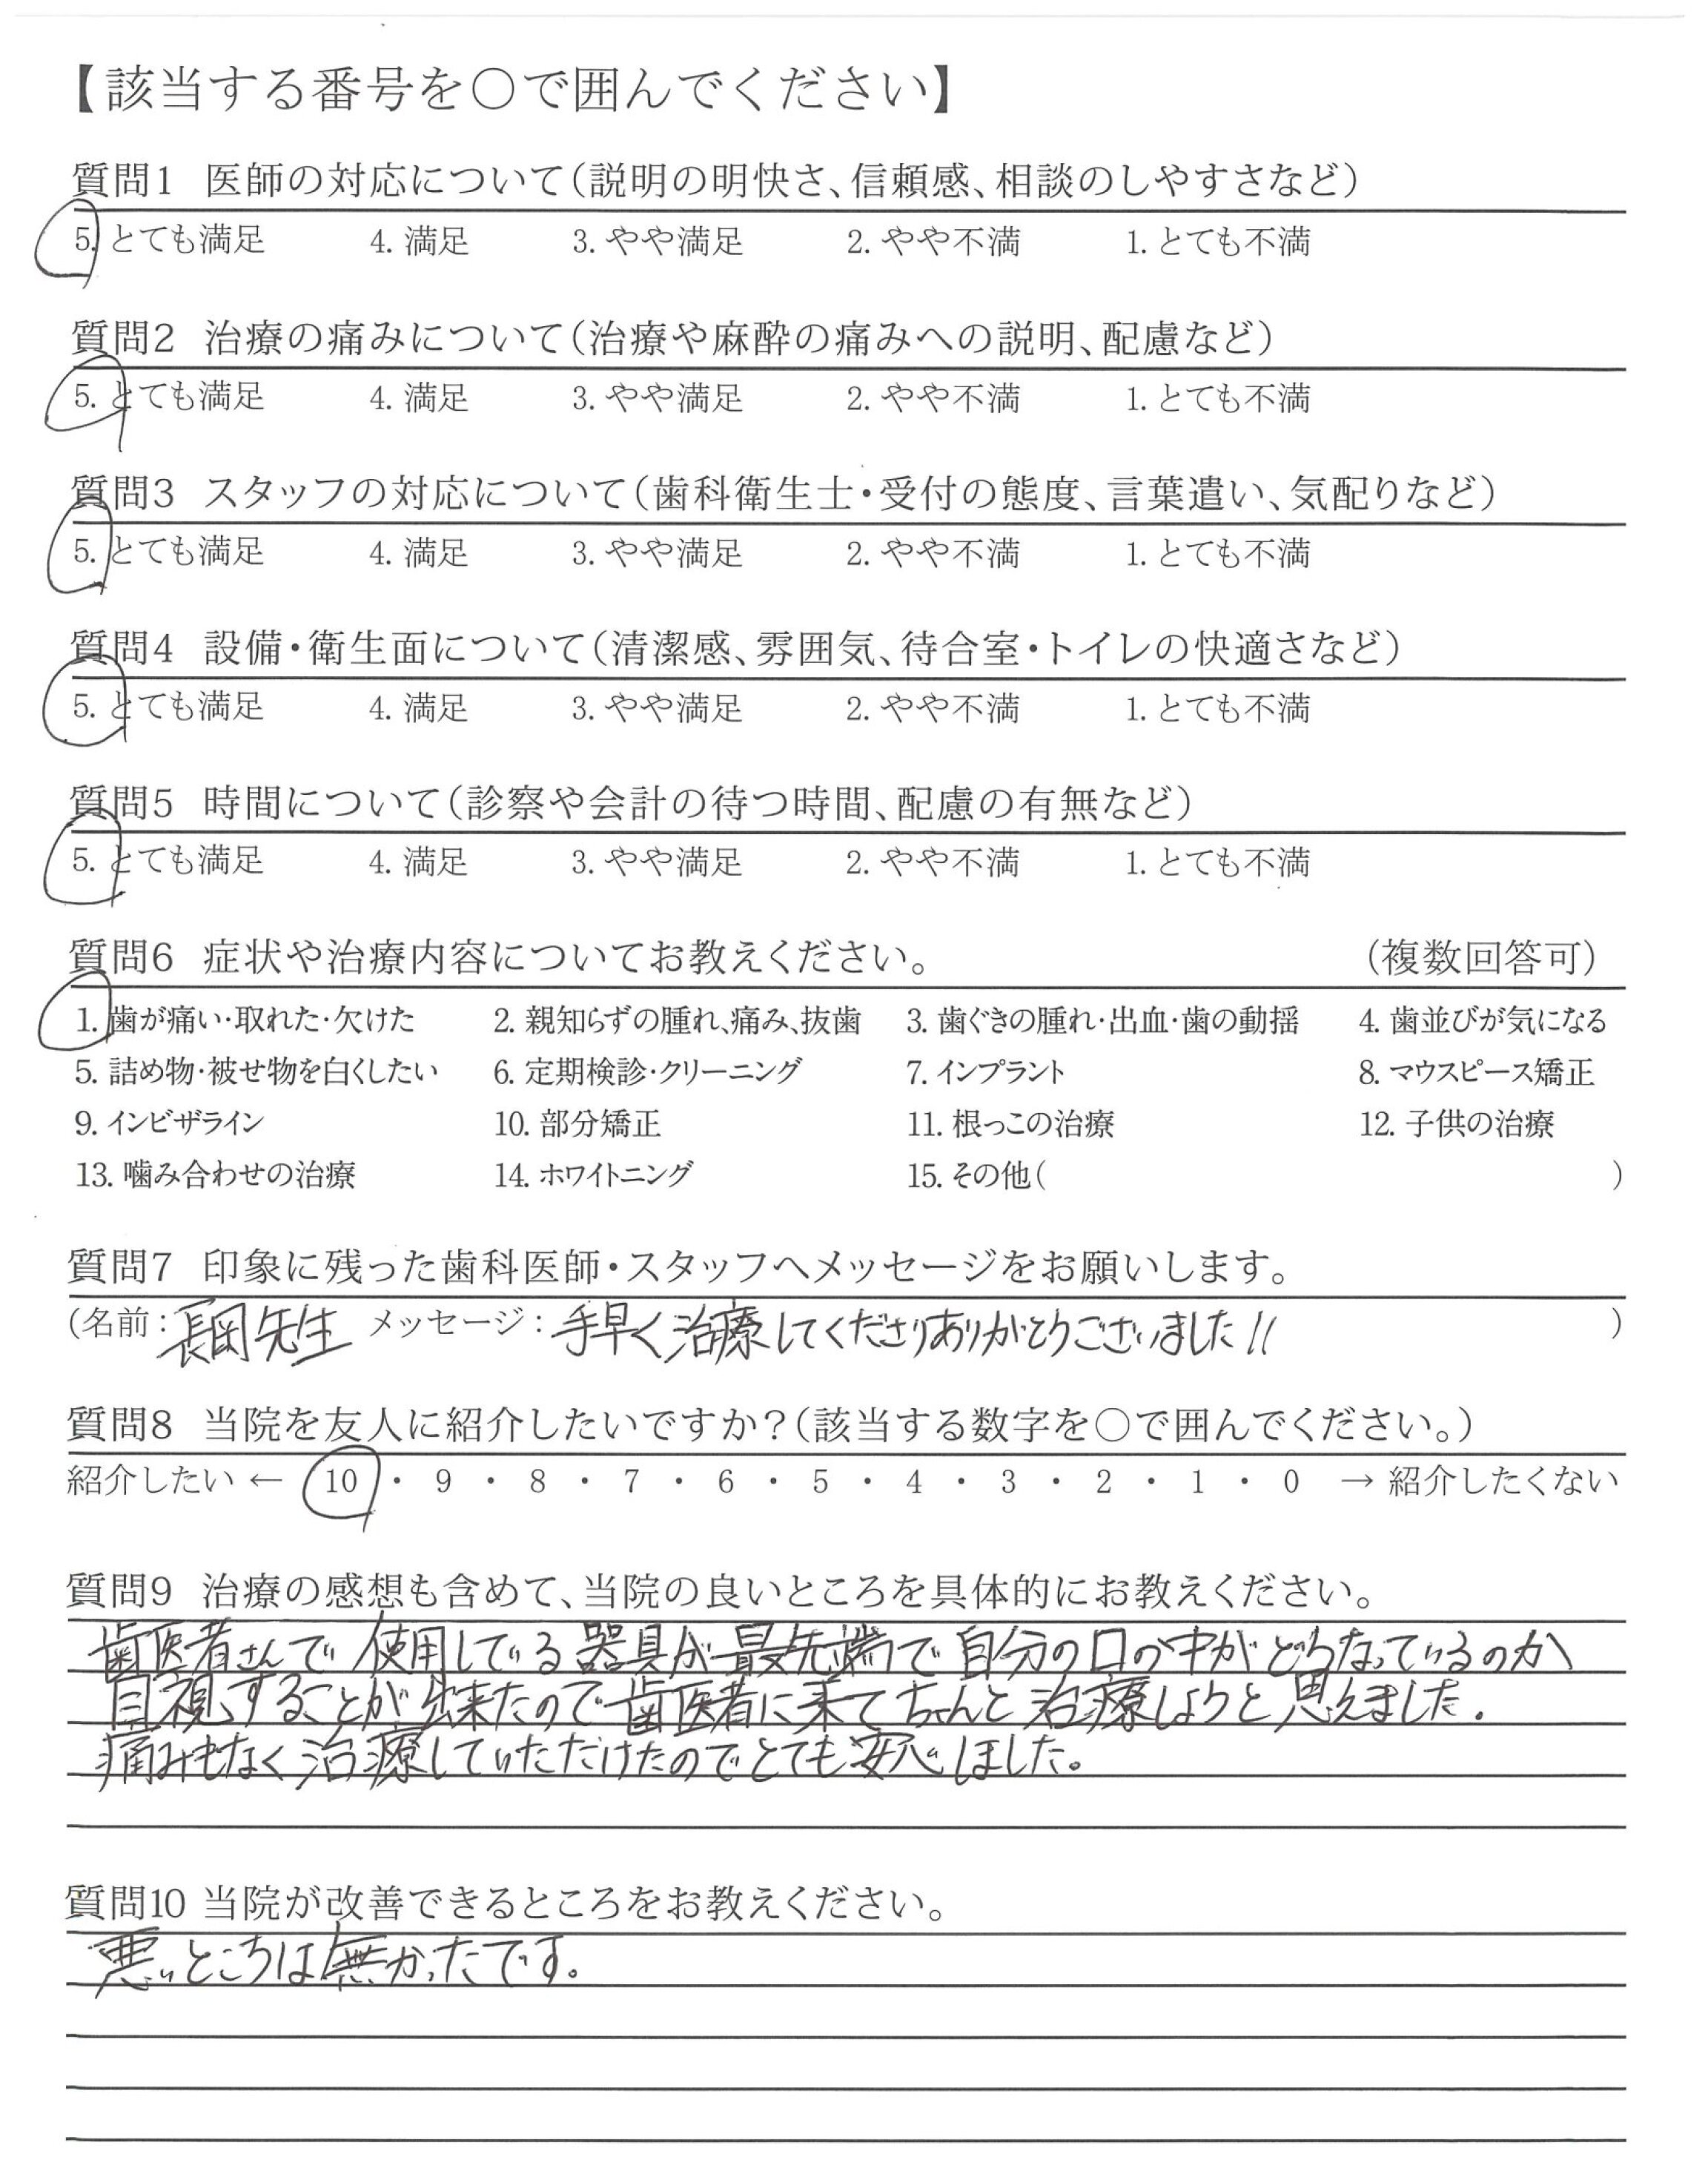 【該当する番号を○で囲んでください】
質問1 医師の対応について(説明の明快さ、信頼感、相談のしやすさなど)
5. とても満足 4. 満足 3. やや満足 2. やや不満 1. とても不満
質問2 治療の痛みについて(治療や麻酔の痛みへの説明、配慮など)
5. とても満足 4. 満足 3. やや満足 2. やや不満 1. とても不満
質問3 スタッフの対応について(歯科衛生士・受付の態度、言葉遣い、気配りなど)
5. とても満足 4. 満足 3. やや満足 2. やや不満 1. とても不満
質問4 設備・衛生面について(清潔感、雰囲気、待合室・トイレの快適さなど)
5. とても満足 4. 満足 3. やや満足 2. やや不満 1. とても不満
質問5 時間について(診察や会計の待つ時間、配慮の有無など)
5. とても満足 4. 満足 3. やや満足 2. やや不満 1. とても不満
質問6 症状や治療内容についてお教えください。 (複数回答可)
1. 歯が痛い・取れた・欠けた 2. 親知らずの腫れ、痛み、抜歯 3. 歯ぐきの腫れ・出血・歯の動揺 4. 歯並びが気になる
5. 詰め物・被せ物を白くしたい 6. 定期検診・クリーニング 7. インプラント 8. マウスピース矯正
9. インビザライン 10. 部分矯正 11. 根っこの治療 12. 子供の治療
13. 噛み合わせの治療 14. ホワイトニング 15. その他( )
質問7 印象に残った歯科医師・スタッフへメッセージをお願いします。
(名前:長岡先生 メッセージ:手早く治療してくださりありがとうございました!! )
質問8 当院を友人に紹介したいですか?(該当する数字を○で囲んでください。)
紹介したい ← 10 ・ 9 ・ 8 ・ 7 ・ 6 ・ 5 ・ 4 ・ 3 ・ 2 ・ 1 ・ 0 → 紹介したくない
質問9 治療の感想も含めて、当院の良いところを具体的にお教えください。
歯医者さんで使用している器具が最先端で自分の口の中がどうなっているのか
目視することが出来たので歯医者に来てちゃんと治療しようと思えました.
痛みもなく治療していただけたのでとても安心しました。
質問10 当院が改善できるところをお教えください。
悪いところは無かったです。